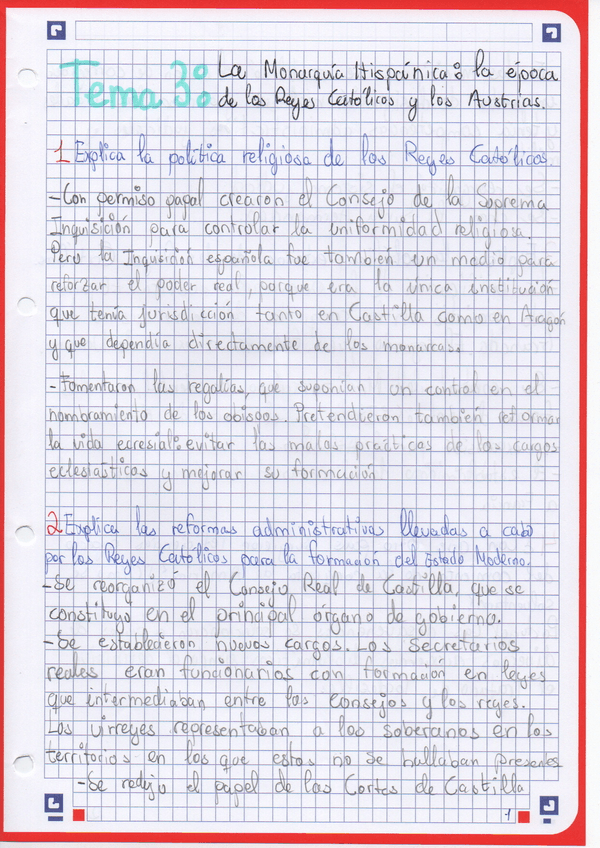 Tema 3: La Monarquía Hispánica: la época
de los Reyes Católicos y los Austrias.
1 Explica la política religiosa de los Reyes Católicos.
-Con permiso papal crearon el Consejo de la Suprema
Inquisición para controlar la uniformidad religiosa.
Pero la Inquisición española fue también un medio para
reforzar el poder real, porque era la única institución
que tenía jurisdicción tanto en Castilla como en Aragón
y que dependía directamente de los monarcas.
-Fomentaron las regalías, que suponían un contol en el
nombramiento de los obispos. Pretendieron también reformar
la vida ecresial: evitar las malas prácticas de los cargos
eclesiásticos y mejorar su formación
2 Explica las reformas administrativas llevadas a cabo
por los Reyes Católicos para la formación del Estado Moderno.
-Se reorganizó el Consejo Real de Castilla, que se
constituyó en el principal órgano de gobierno.
-Se establecieron nuevos cargos. Los secretarios
reales eran funcionarios con formación en leyes
que intermediaban entre los consejos y los reyes.
Los virreyes representaban a los soberanos en los
territorios en los que estos no se hallaban presentes
-Se redujo el papel de las Cortes de Castilla
1